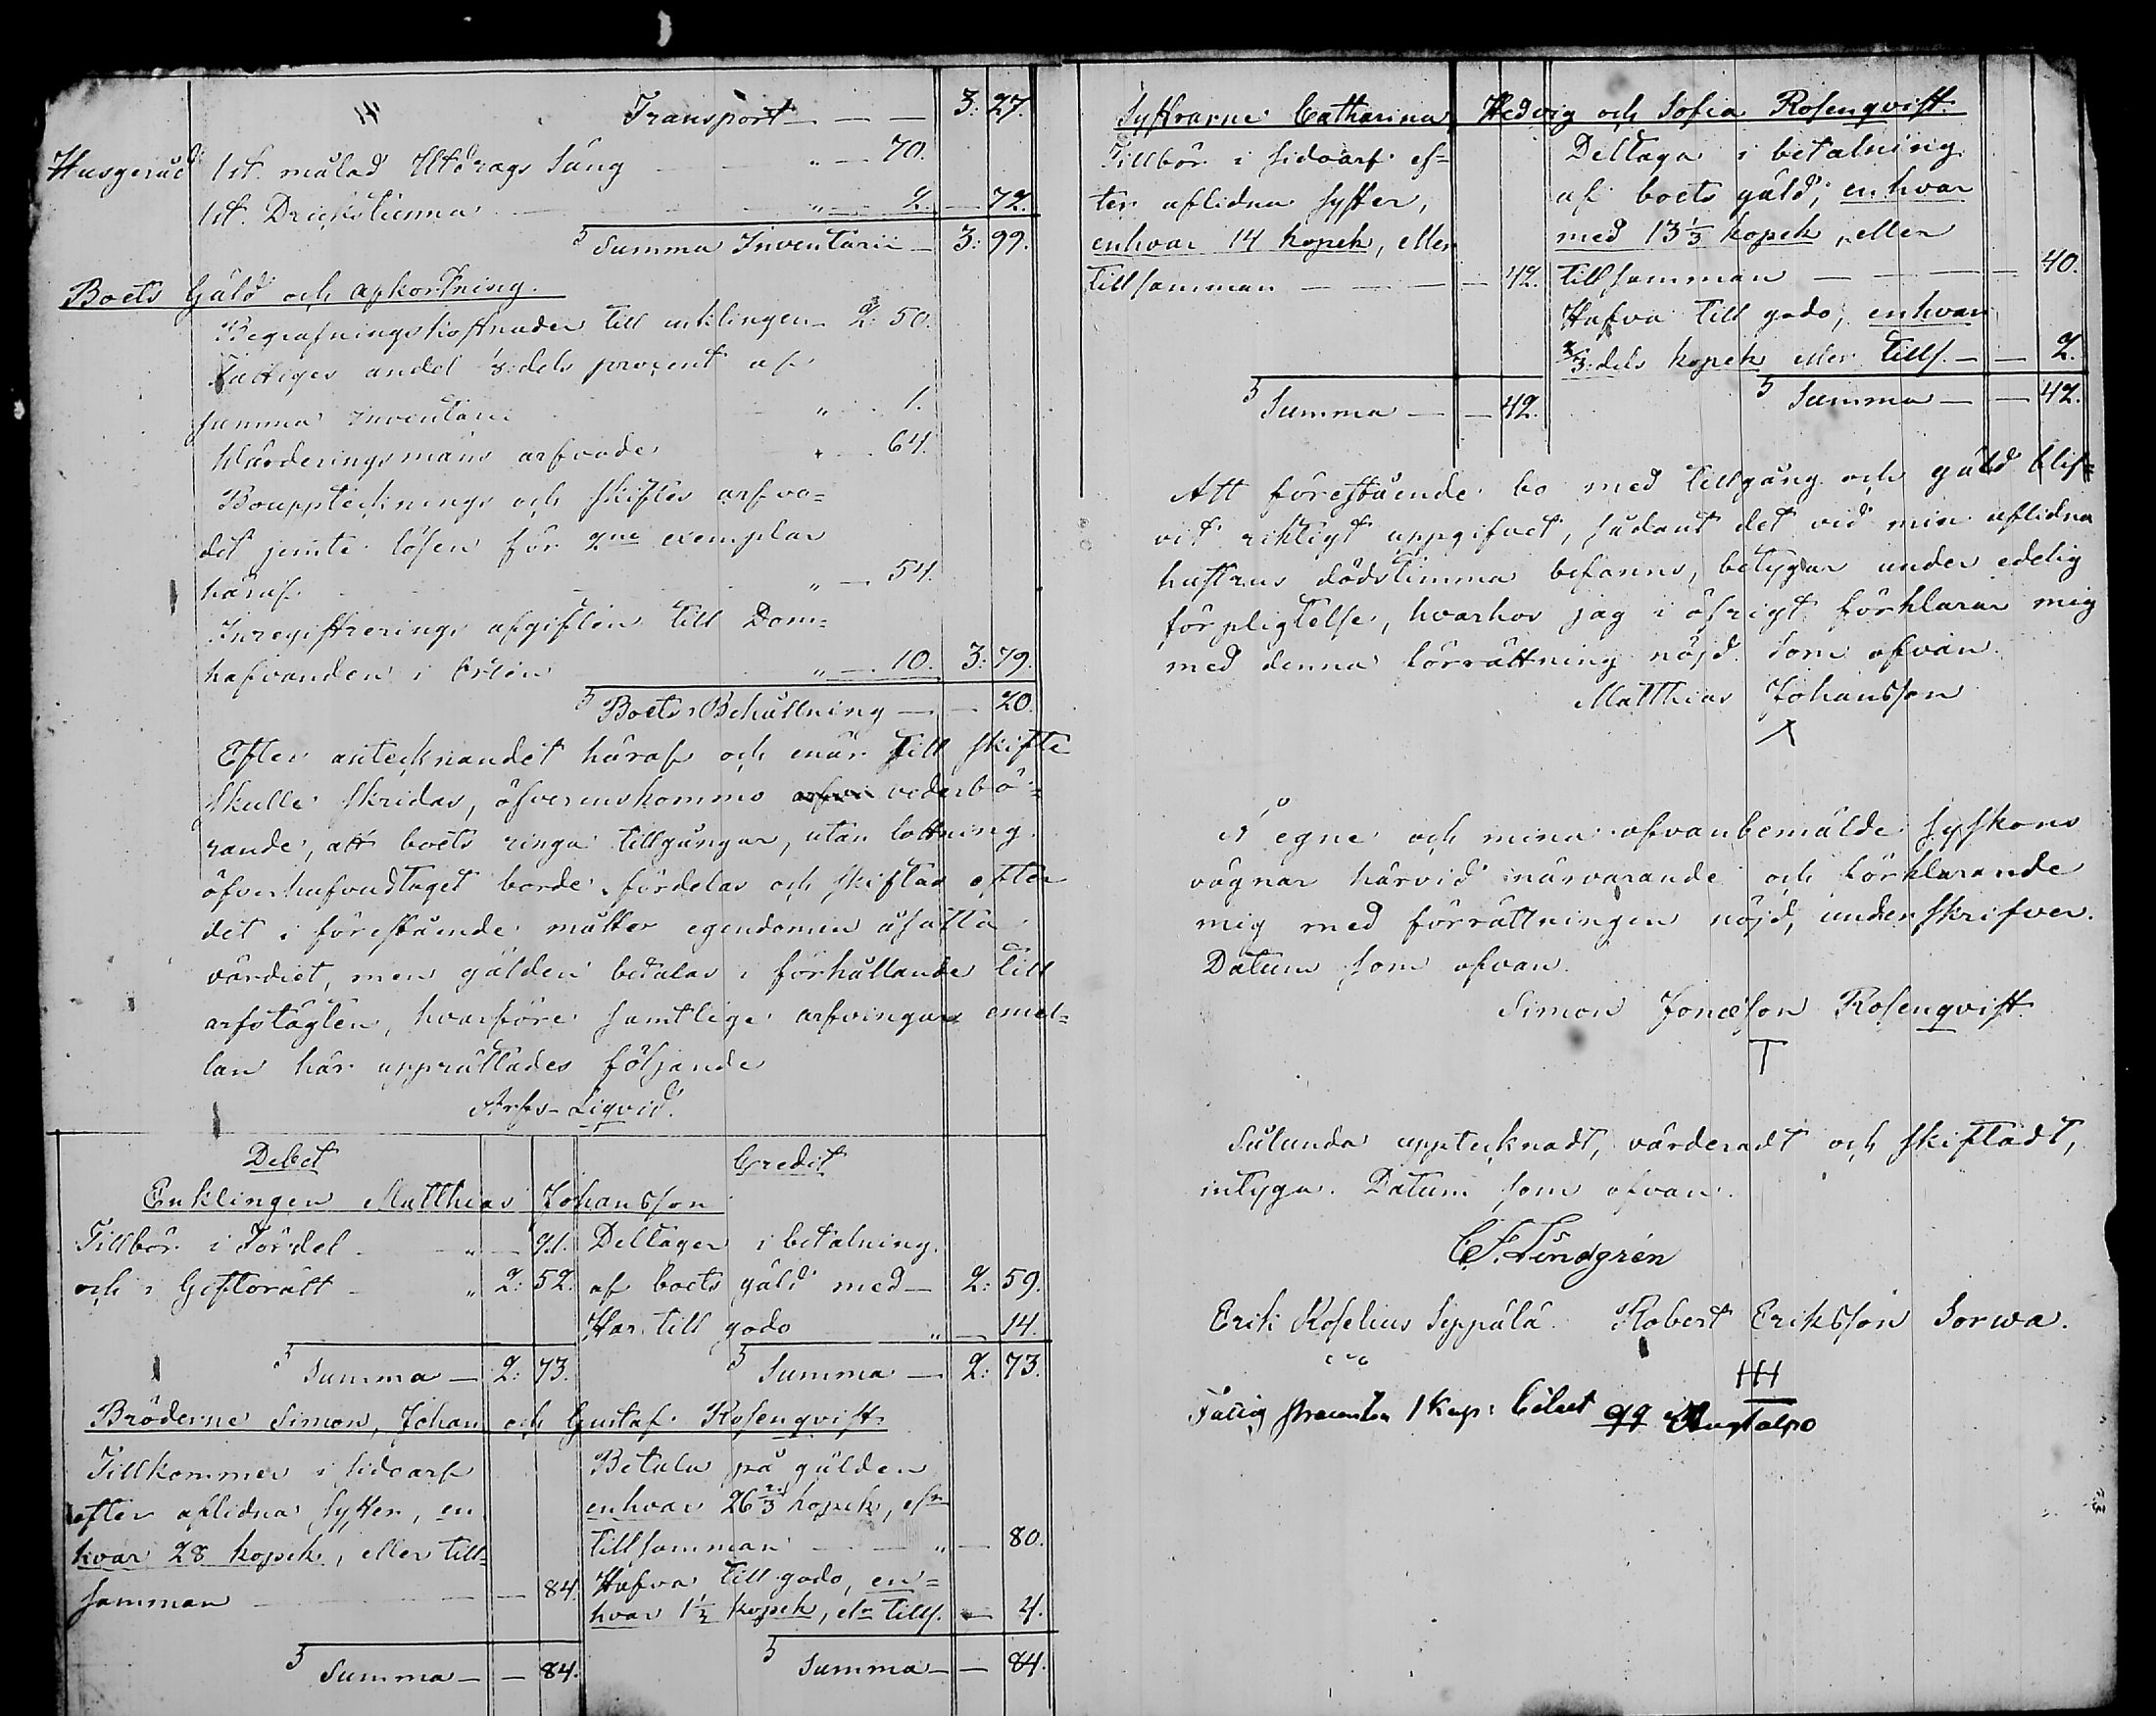 Transport — — 3: 27.
Husgeråd 1 st. målad Utdrags Säng " — 70.
1 st. Drickstunna " — 2. — 72.
Summa Inventarii — 3: 99.
Boets Gäld och afkortning.
Begrafningskostnader till enklingen — 2: 50.
Fattiges andel 1/8:dels procent af
summa inventarii " — 1.
Wärderingsmäns arfvode " — 64.
Bouppteknings och skiftes arfvo=
det jemte lösen för 2ne exemplar
häraf " — 54.
Inregistrerings afgiften till Dom=
hafvanden i Orten " — 10. 3: 79.
Boets Behållning — — 20.
Efter antecknandet häraf och enär till skifte
skulle skridas, öfverenskommo vederbö=
rande, att boets ringa tillgångar, utan lottning
öfverhufvudtaget borde fördelas och skiftas efter
det i förestående måtter egendomen åsatta
värdiet, men gälden betalas i förhållande till
arfstägten, hvarföre samtlige arfvingars emel=
lan här upprättades följande
Arfs-Liqvid.
Debet Credit
Enklingen Matthias Johansson
Tillbör i Fördel " — 21. Deltager i betalning
och i Giftorätt " 2: 52. af boets gäld med — 2: 59.
Har till godo " — 14.
Summa — 2: 73. Summa — 2: 73.
Bröderne Simon, Johan och Gustaf Rosenqvist.
Tillkommer i sidoarf Betala på gälden
efter aflidna syster, en enhvar 26 2/3 kopek, elr
hvar 28 kopek, eller till= tillsamman — " — 80.
samman — — 84. Hafva till godo, en=
hvar 1 1/3 kopek, elr tills. — 4.
Summa — — 84. Summa — — 84.
Systrarne Catharina, Hedvig och Sofia Rosenqvist.
Tillbör i sidoarf ef= Deltaga i betalning
ter aflidna syster, af boets gäld, enhvar
enhvar 14 kopek, eller med 13 1/3 kopek, eller
tillsamman — — — 42. tillsamman — — — 40.
Hafva till godo, enhvar
2/3:dels kopek eller tills. — — 2.
Summa — — 42. Summa — — 42.
Att förestående bo med tillgång och gäld blif=
vit riktigt uppgifvet, sådant det vid min aflidna
hustrus dödstimma befanns, betygar under edelig
förpligtelse, hvarhos jag i öfrigt förklarar mig
med denna förrättning nöjd. Som ofvan.
Matthias Johansson
Å egne och mina ofvanbemälde syskons
vägnar härvid närvarande och förklarande
mig med förrättningen nöjd, underskrifver.
Datum som ofvan.
Simon Jonæson Rosenqvist.
Sålunda upptecknadt, värderadt och skiftadt,
intyga. Datum som ofvan.
C. F. Lindgrén
Erik Roselius Seppälä. Robert Eriksson Sorwa.